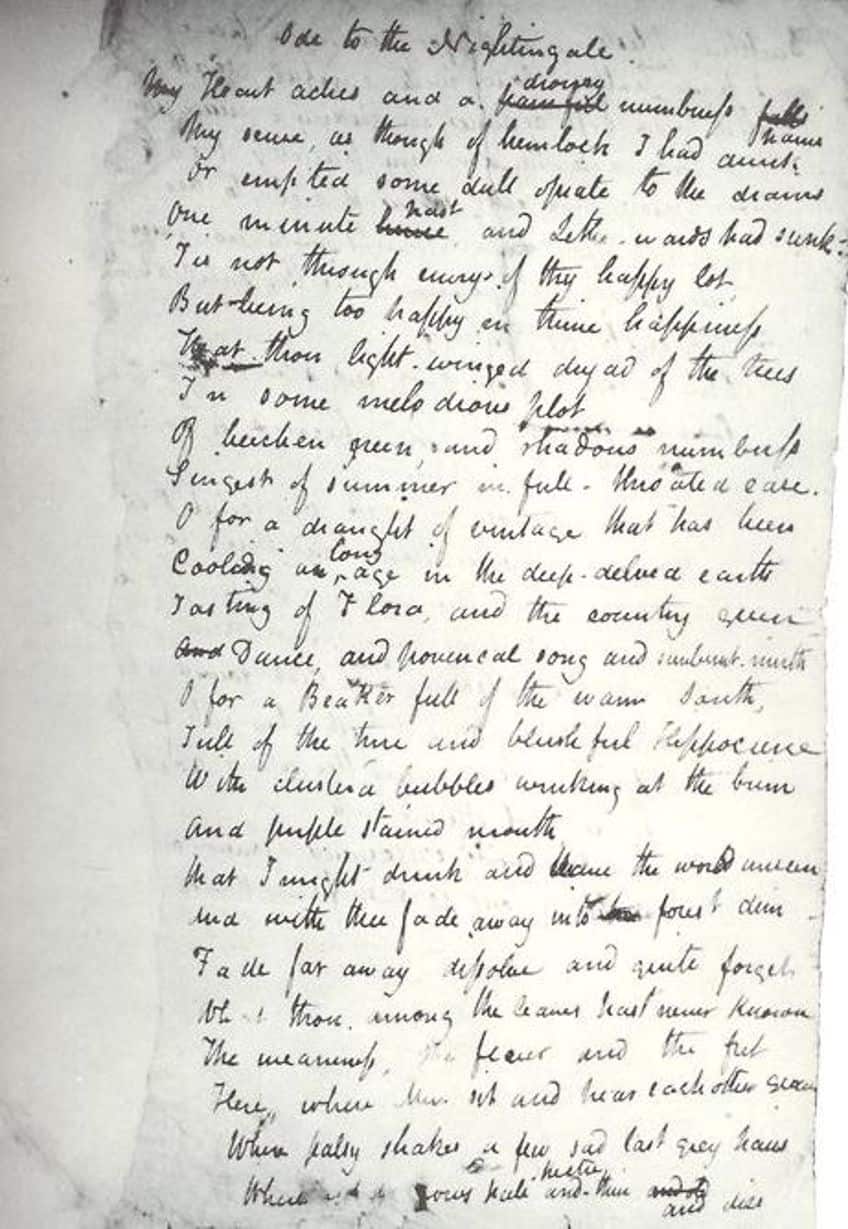 Ode to the Nightingale
My Heart aches and a drowsy painful numbness falls pains
My sense, as though of hemlock I had drunk
Or emptied some dull opiate to the drains
One minute hence past and Lethe-wards had sunk
Tis not through envy of thy happy lot
But being too happy in thine happiness
That thou light-winged dryad of the trees
In some melodious plot
Of beechen green, and shadows numberless
Singest of summer in full-throated ease.
O for a draught of vintage that has been
Cooling an long age in the deep-delved earth
Tasting of Flora, and the country green
And Dance, and provencal song and sunburnt mirth
O for a Beaker full of the warm South,
Full of the true and blushful Hippocrene
With cluster'd bubbles winking at the brim
And purple stained mouth
That I might drink and leave the world unseen
And with thee fade away into the forest dim
Fade far away dissolve and quite forget
What thou among the leaves hast never known
The weariness, the fever and the fret
Here, where Men sit and hear each other groan
Where palsy shakes a few sad last grey hairs
Where grows pale and thin and dies